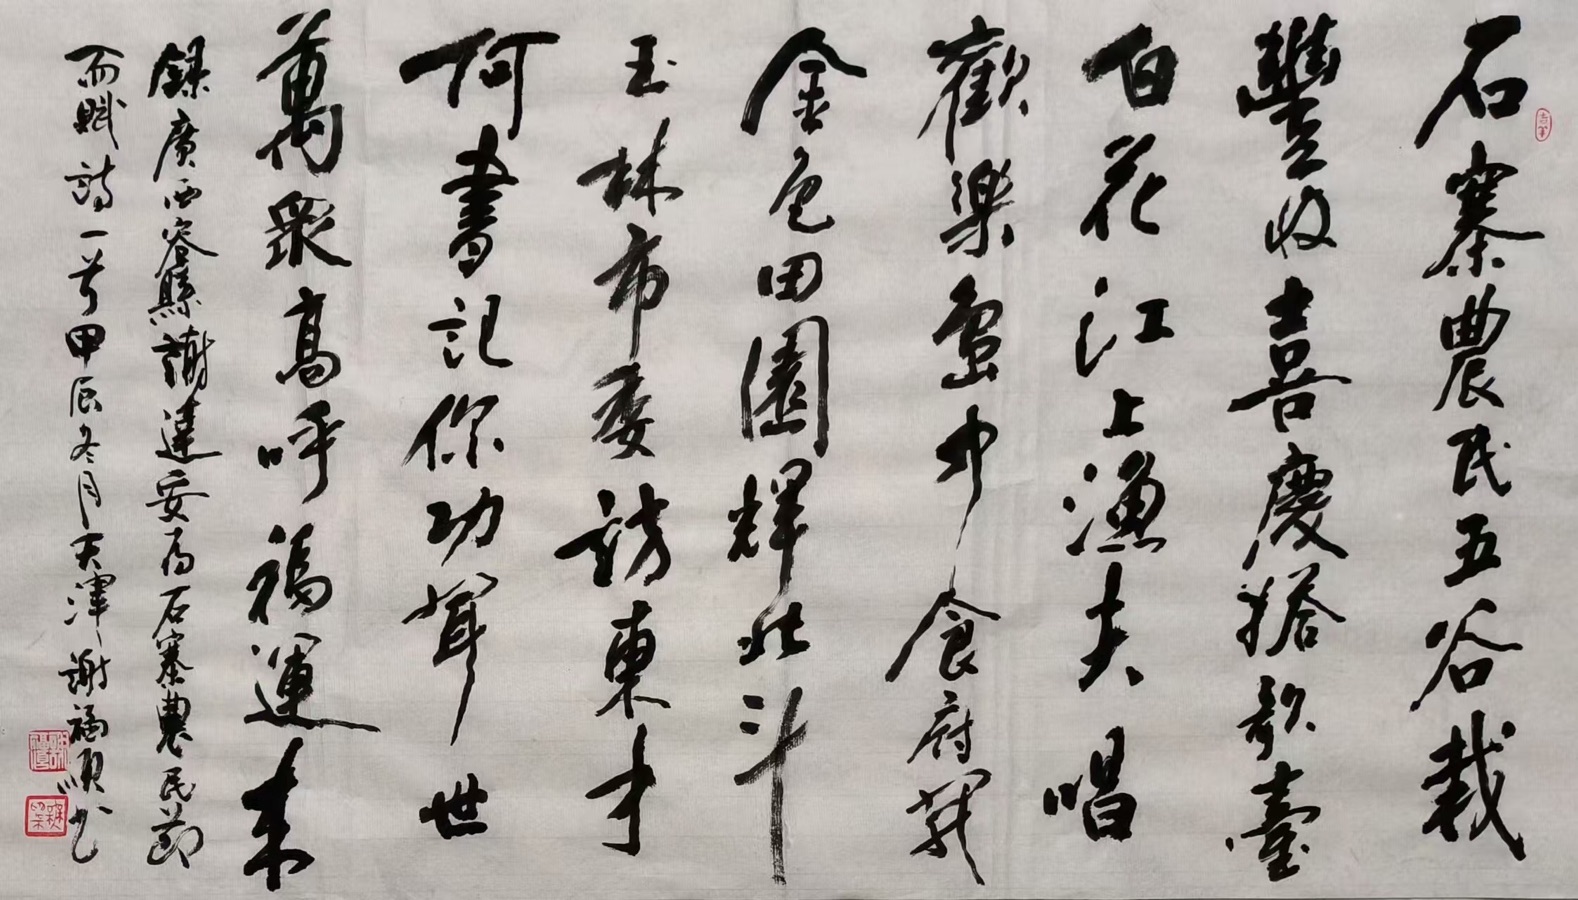 石寨農民五谷栽
豐收喜慶搭歌臺
白花江上漁夫唱
歡樂島中食府開
金色田園輝北斗
玉林市委訪東才
何書記你功蓋世
萬眾高呼福運來
錄廣西容縣謝達安為石寨農民節
而賦詩一首甲辰冬月天津謝福順書